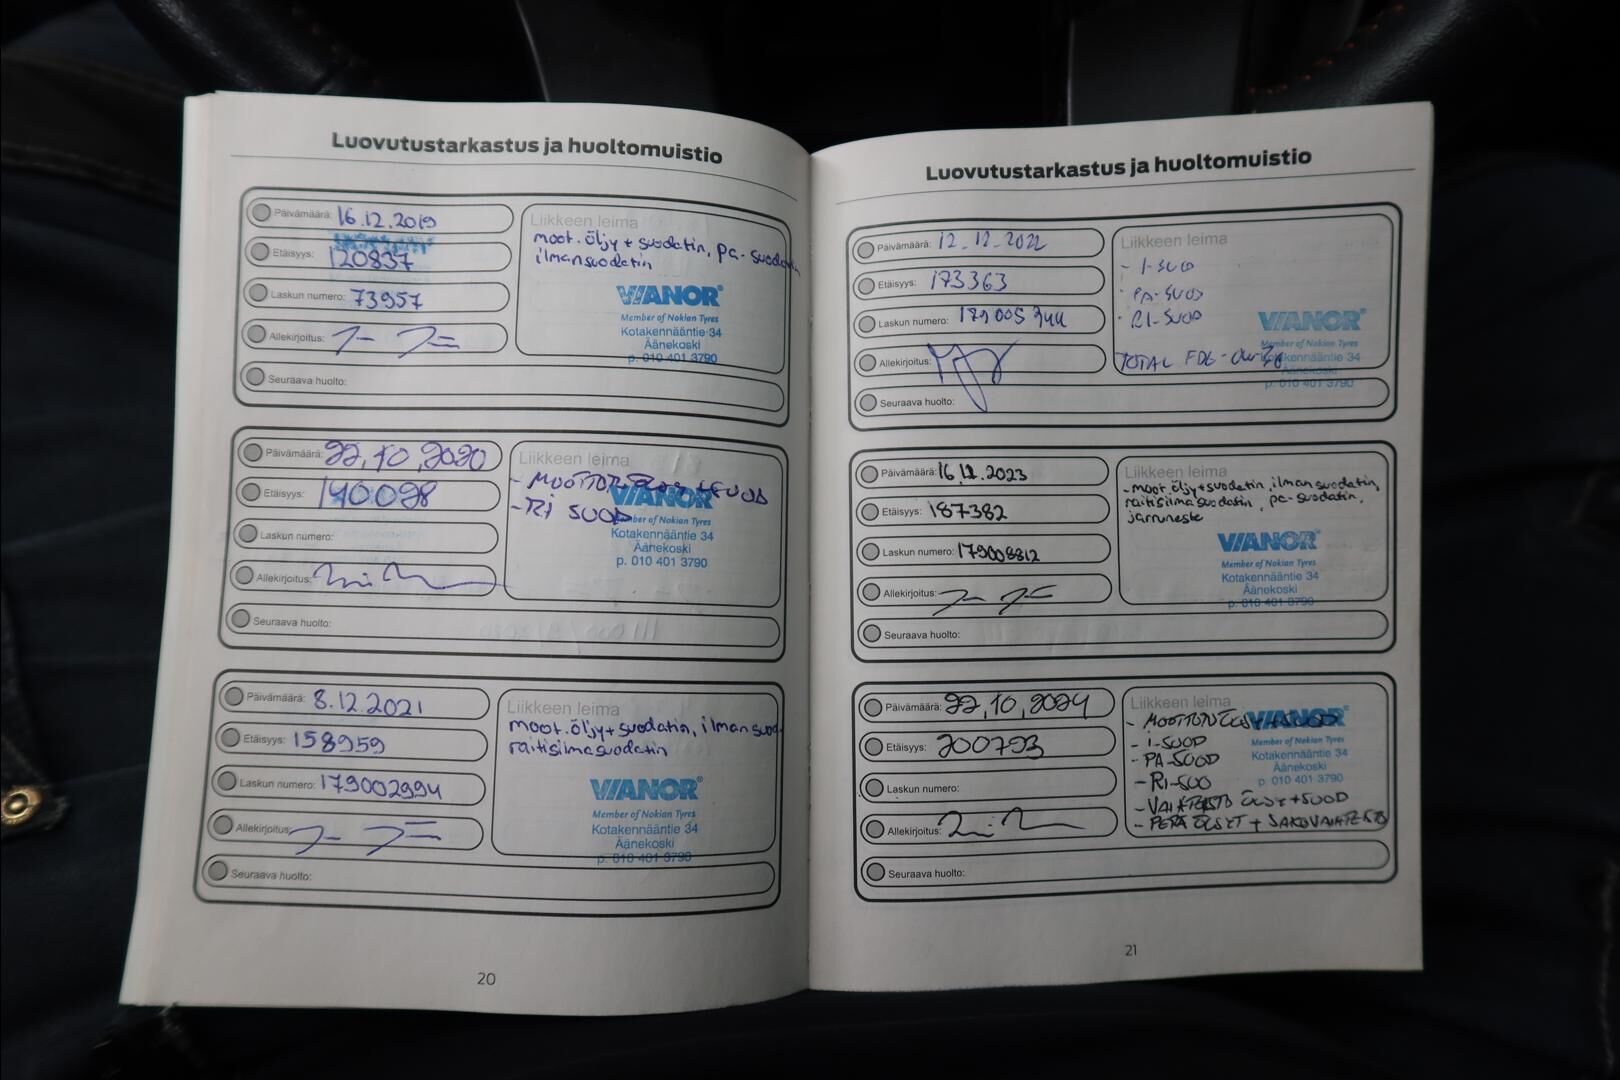 Luovutustarkastus ja huoltomuistio
Päivämäärä: 16.12.2019
Etäisyys: 120837
Laskun numero: 73957
Allekirjoitus:
Seuraava huolto:
Liikkeen leima
moot.öljy + suodatin, pa-suodatin
ilmansuodatin
VIANOR®
Member of Nokian Tyres
Kotakennääntie 34
Äänekoski
p. 010 401 3790
Päivämäärä: 22,10,2020
Etäisyys: 140098
Laskun numero:
Allekirjoitus:
Seuraava huolto:
Liikkeen leima
- RI SUOD
VIANOR
Member of Nokian Tyres
Kotakennääntie 34
Äänekoski
p. 010 401 3790
Päivämäärä: 8.12.2021
Etäisyys: 158959
Laskun numero: 179002994
Allekirjoitus:
Seuraava huolto:
Liikkeen leima
moot.öljy+suodatin, ilmansuod
raitisilmasuodatin
VIANOR®
Member of Nokian Tyres
Kotakennääntie 34
Äänekoski
p. 010 401 3790
20
Luovutustarkastus ja huoltomuistio
Päivämäärä: 12.12.2022
Etäisyys: 173363
Laskun numero: 179005344
Allekirjoitus:
Seuraava huolto:
Liikkeen leima
- I-SUOD
- PA-SUOD
- RI-SUOD
TOTAL
VIANOR®
Member of Nokian Tyres
Kotakennääntie 34
Äänekoski
p. 010 401 3790
Päivämäärä: 16.12.2023
Etäisyys: 187382
Laskun numero: 179008812
Allekirjoitus:
Seuraava huolto:
Liikkeen leima
-moot.öljy+suodatin, ilmansuodatin,
raitisilmasuodatin, pa-suodatin,
jarruneste
VIANOR®
Member of Nokian Tyres
Kotakennääntie 34
Äänekoski
p. 010 401 3790
Päivämäärä: 22,10,2024
Etäisyys: 200793
Laskun numero:
Allekirjoitus:
Seuraava huolto:
Liikkeen leima
- I-SUOD
- PA-SUOD
- RI-SUO
- VAIHTEISTO ÖLJY+SUOD
- PERÄ ÖLJYT + JAKOVAIHTEISTO
VIANOR®
Member of Nokian Tyres
Kotakennääntie 34
Äänekoski
p 010 401 3790
21